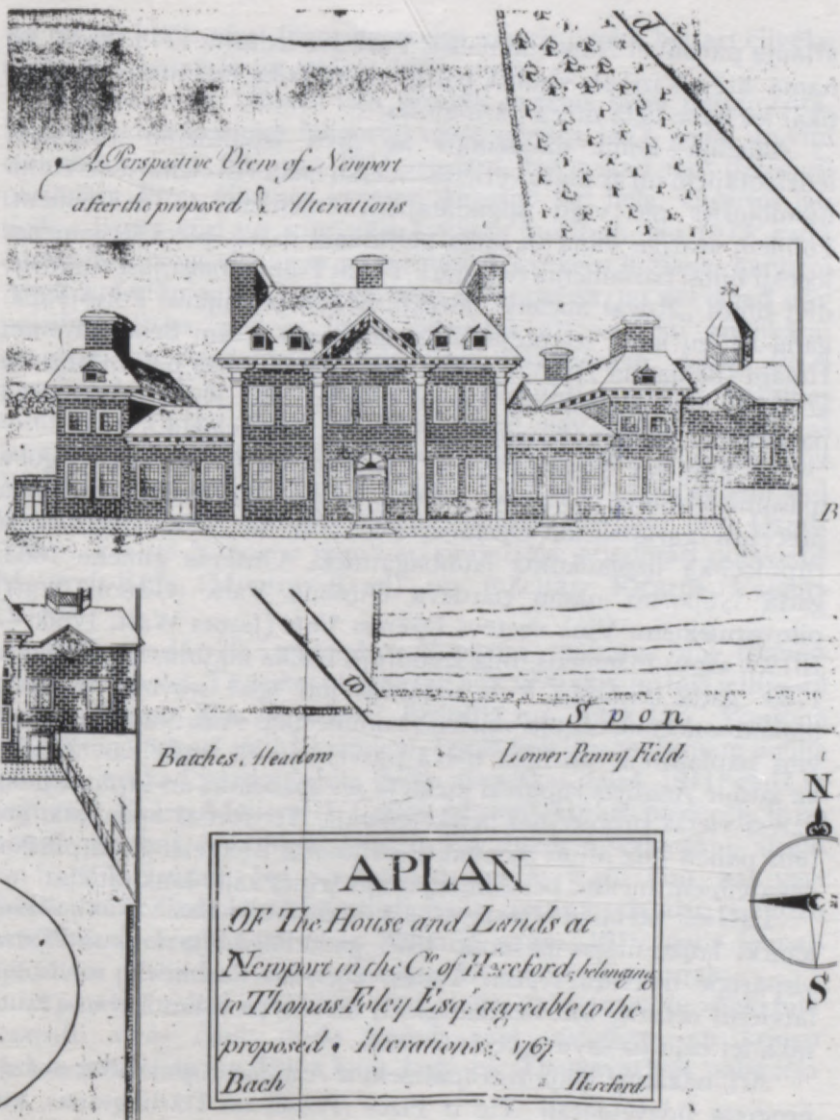 d
A Perspective View of Newport
after the proposed Alterations
B
to
Spon
Batches Meadow
Lower Penny Field
N
S
A PLAN
OF The House and Lands at
Newport in the Co. of Hereford, belonging
to Thomas Foley Esqr. agreable to the
proposed Alterations: 1767
Bach Hereford.